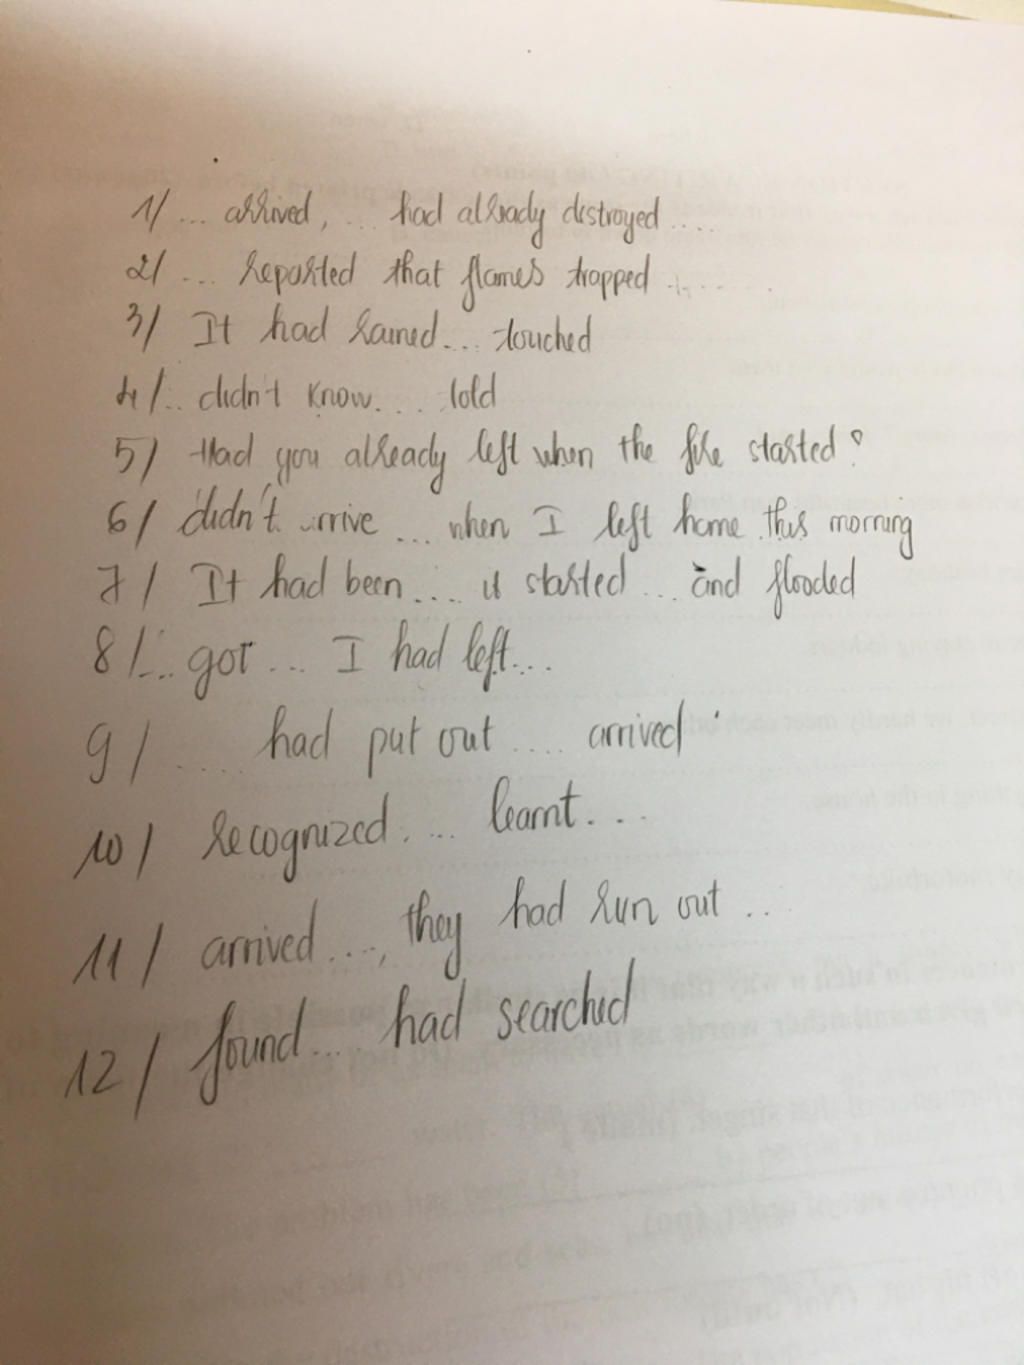 1/ ... arrived, ... had already distroyed ....
2/ ... reported that flames trapped ......
3/ It had rained... touched
4/.. didn't know.... told
5/ Had you already left when the fire started?
6/ didn't arrive ... when I left home this morning
7/ It had been.... it started ... and flooded
8/... got ... I had left...
9/ ..... had put out .... arrived
10/ recognized. ... learnt. ..
11/ arrived ..., they had run out ...
12/ found... had searched